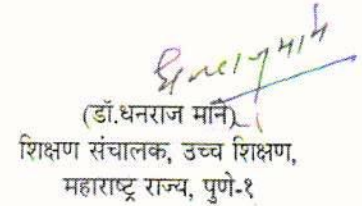 (डॉ.धनराज माने)
शिक्षण संचालक, उच्च शिक्षण,
महाराष्ट्र राज्य, पुणे-१